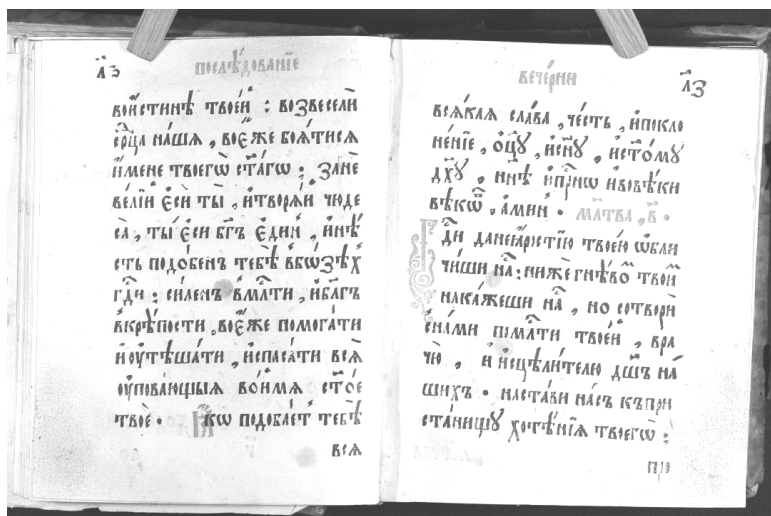 л҃з
послѣ́дованїе
во и҆́стинѣ твое́й : возвеселѝ
ср҃ца на́ша , во є҆́же боѧ́тисѧ
и҆́мене твоегѡ̀ ст҃а́гѡ : занѐ
ве́лїй є҆сѝ ты̀ , и҆ творѧ́й чюде
са̀ , ты̀ є҆сѝ бг҃ъ є҆ди́нъ , и҆ нѣ́
сть подо́бенъ тебѣ̀ в бѡзѣ́хъ
гд҃и : си́ленъ в мл҃ти , и҆ бл҃гъ
в крѣ́пости , во є҆́же помога́ти
и҆ ᲂу҆тѣша́ти , и҆ спаса́ти всѧ̀
ᲂу҆пова́ющыѧ во и҆́мѧ ст҃о́е
твоѐ . Ꙗ҆́кѡ подоба́етъ тебѣ̀
всѧ
вече́рни
л҃з
всѧ́каѧ сла́ва , че́сть , и҆ покло
не́нїе , ѻ҆ц҃ꙋ̀ , и҆ сн҃ꙋ , и҆ ст҃о́мꙋ
дх҃ꙋ , нн҃ѣ и҆ при́снѡ и҆ во вѣ́ки
вѣкѡ́въ , а҆ми́нь . мл҃тва , в҃ .
Гд҃и да не ꙗ҆́ростїю твое́ю ѡ҆бли
чи́ши на́съ : нижѐ гнѣ́вомъ твои́мъ
нака́жеши на́съ , но сотворѝ
с на́ми по мл҃ти твое́й , вра
чю̀ , и҆ и҆сцѣли́телю дш҃ъ на́
шихъ . наста́ви на́съ къ при
ста́нищꙋ хотѣ́нїѧ твоегѡ̀ :
про